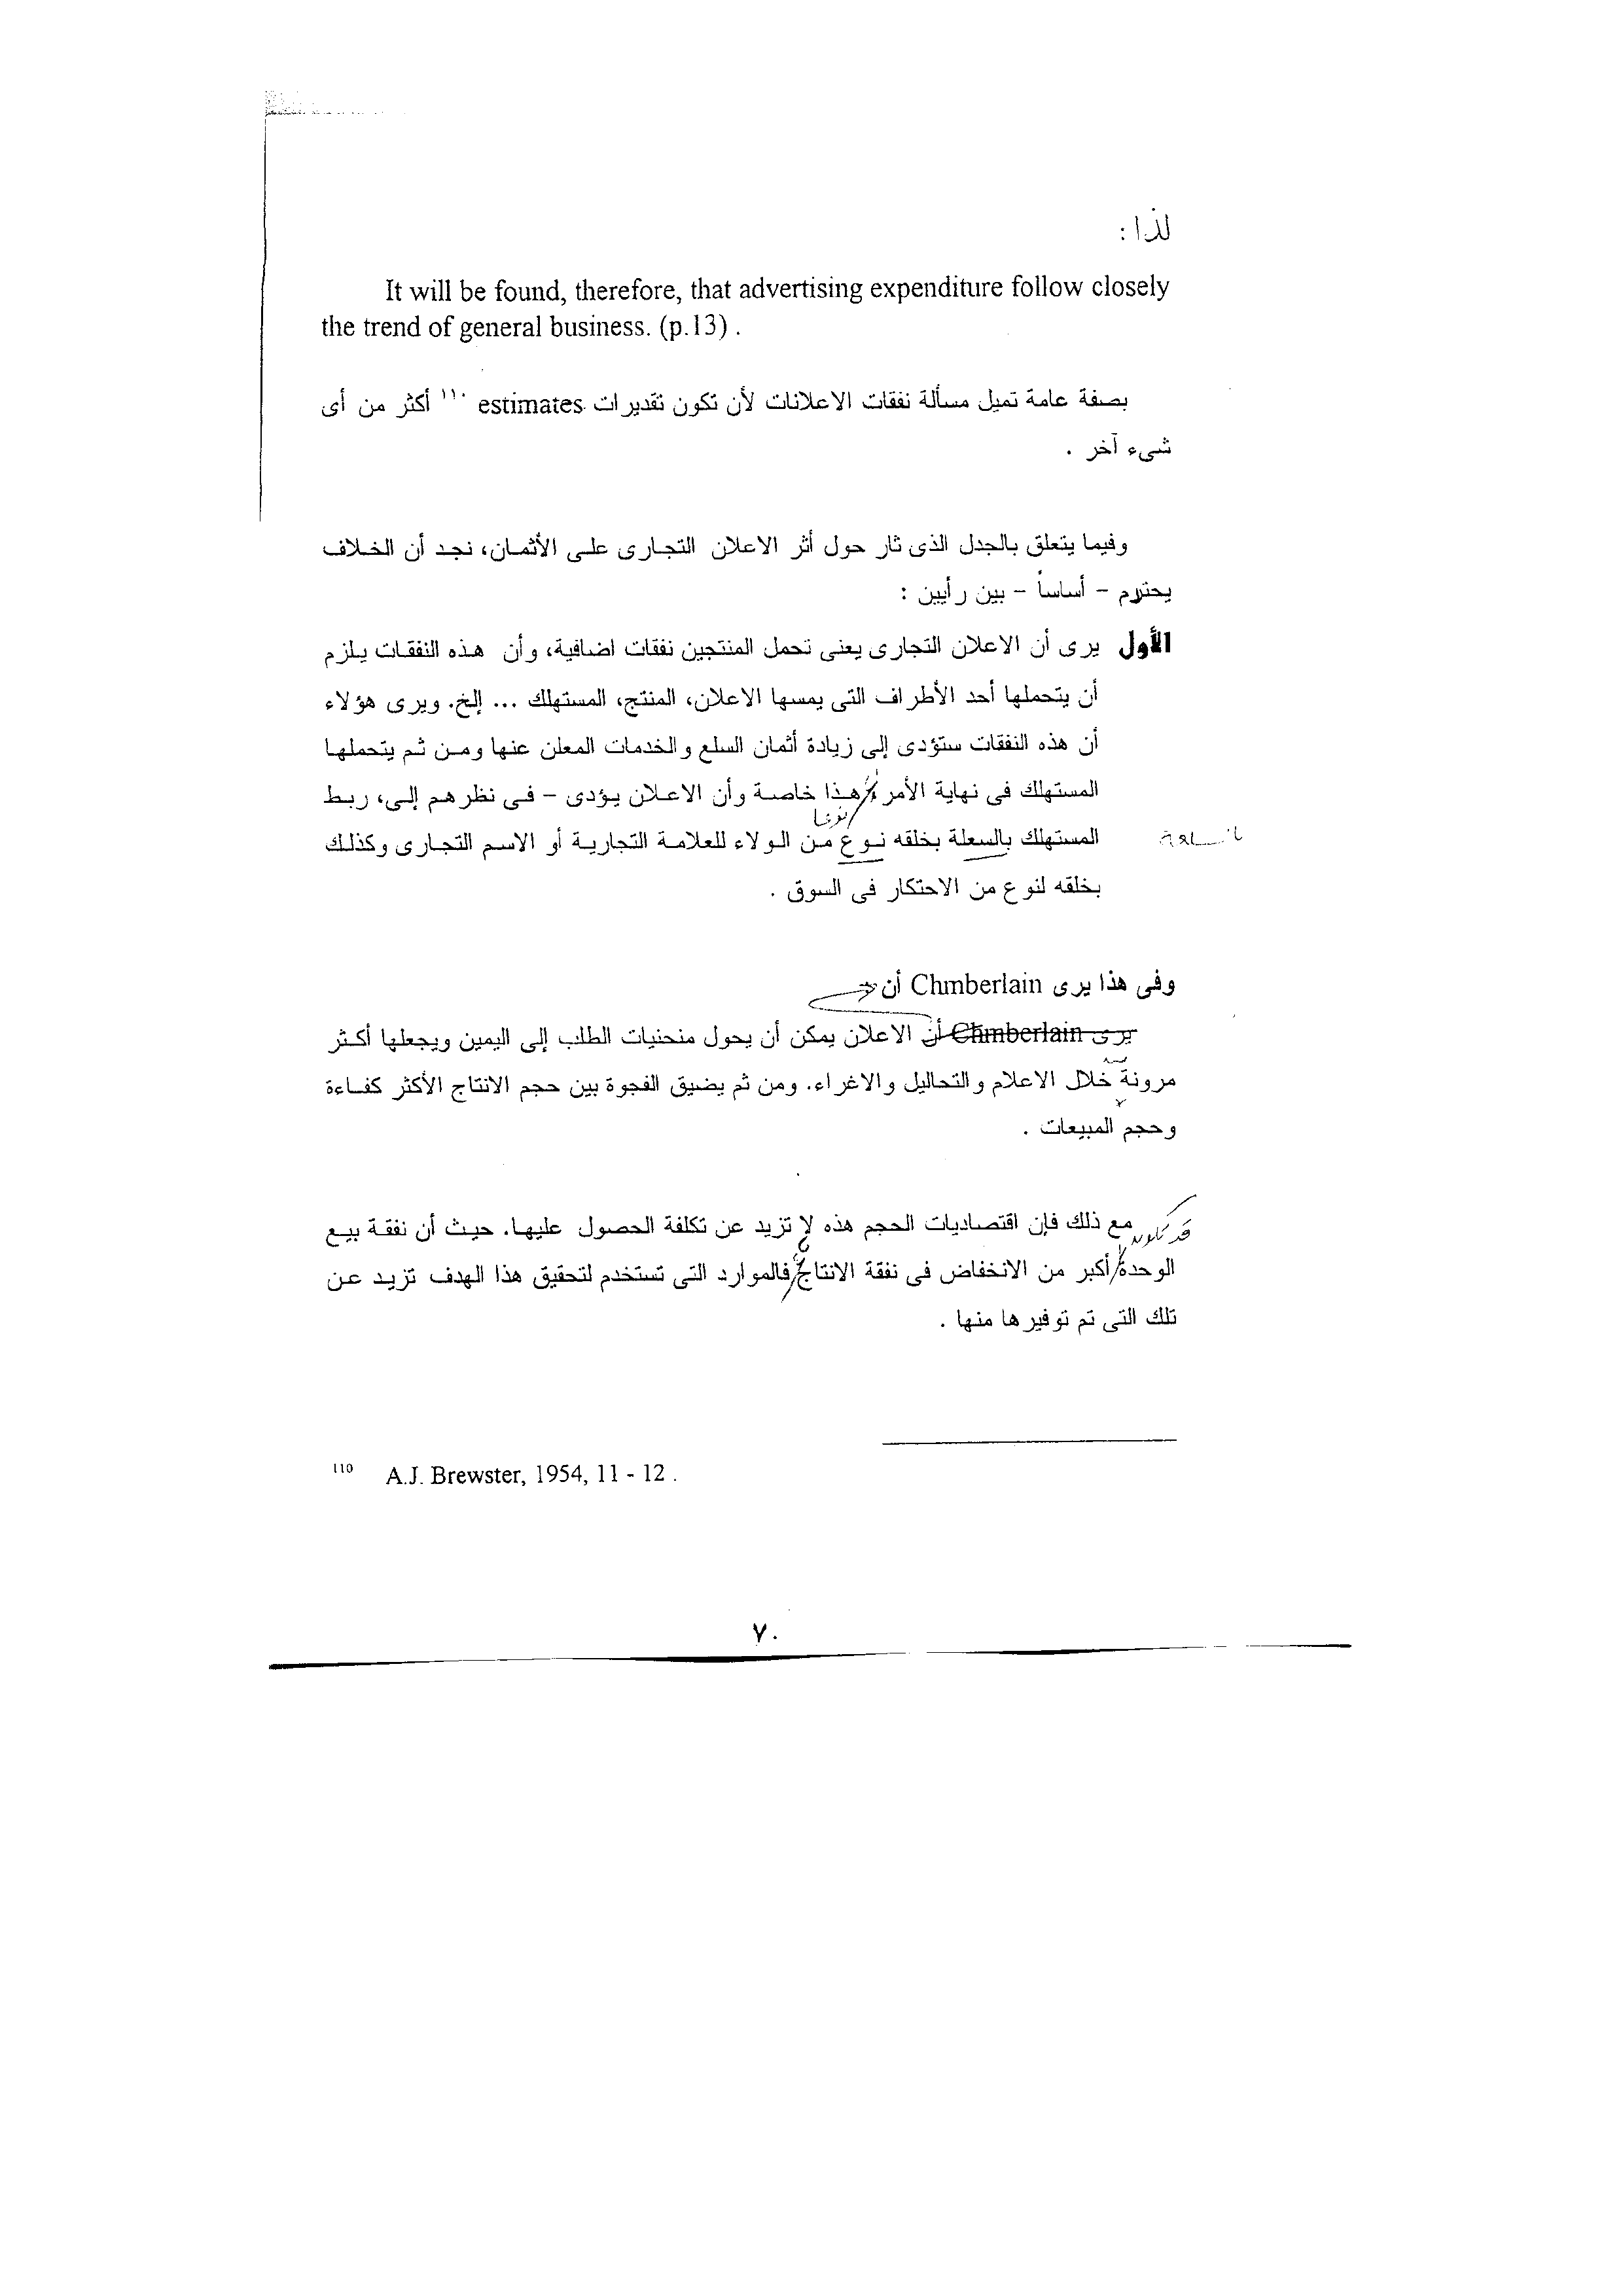 لذا :
It will be found, therefore, that advertising expenditure follow closely
the trend of general business. (p.13) .
بصفة عامة تميل مسألة نفقات الاعلانات لأن تكون تقديرات estimates ١١٠ أكثر من أى
شىء آخر .
وفيما يتعلق بالجدل الذى ثار حول أثر الاعلان التجارى على الأثمان، نجد أن الخلاف
يحترم – أساساً – بين رأيين :
الأول يرى أن الاعلان التجارى يعنى تحمل المنتجين نفقات اضافية، وأن هذه النفقات يلزم
أن يتحملها أحد الأطراف التى يمسها الاعلان، المنتج، المستهلك ... إلخ. ويرى هؤلاء
أن هذه النفقات ستؤدى إلى زيادة أثمان السلع والخدمات المعلن عنها ومن ثم يتحملها
المستهلك فى نهاية الأمر هذا خاصة وأن الاعلان يؤدى – فى نظرهم إلى، ربط
نوعا
المستهلك بالسعلة بخلقه نوع من الولاء للعلامة التجارية أو الاسم التجارى وكذلك
بالسلعة
بخلقه لنوع من الاحتكار فى السوق .
وفى هذا يرى Chmberlain أن
يرى Chmberlain أن الاعلان يمكن أن يحول منحنيات الطلب إلى اليمين ويجعلها أكثر
مرونة خلال الاعلام والتحاليل والاغراء. ومن ثم يضيق الفجوة بين حجم الانتاج الأكثر كفاءة
وحجم المبيعات .
مع ذلك فإن اقتصاديات الحجم هذه لا تزيد عن تكلفة الحصول عليها. حيث أن نفقة بيع
قد تكون
الوحدة أكبر من الانخفاض فى نفقة الانتاج فالموارد التى تستخدم لتحقيق هذا الهدف تزيد عن
تلك التى تم توفيرها منها .
110 A.J. Brewster, 1954, 11 - 12 .
٧٠